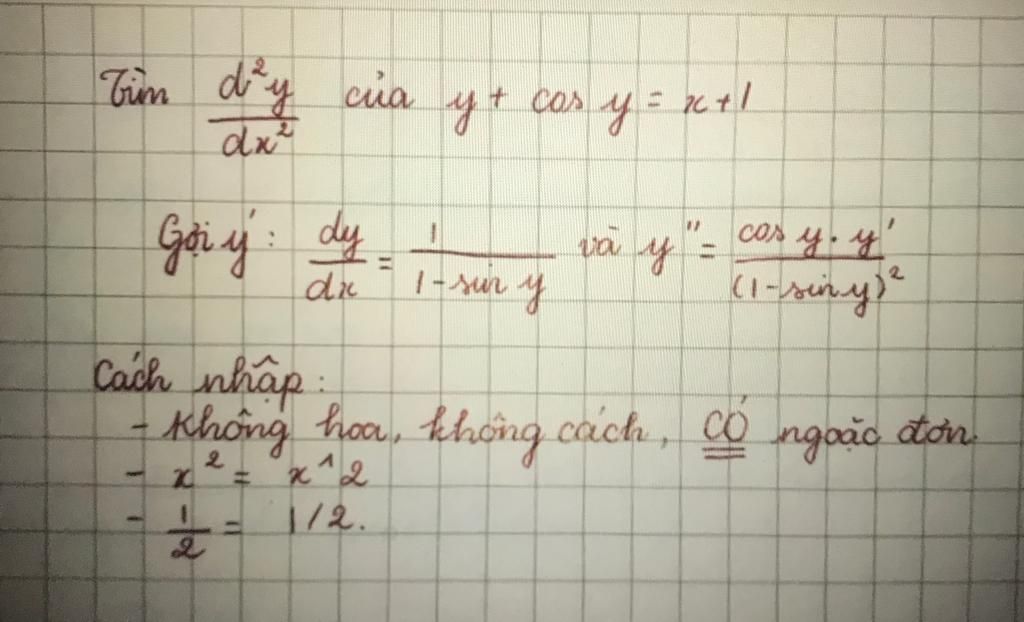 Tìm d²y/dx² của y + cos y = x + 1
Gợi ý: dy/dx = 1/(1 - sin y) và y" = cos y · y'/(1 - sin y)²
Cách nhập:
- Không hoa, không cách, CÓ ngoặc đơn.
- x² = x^2
- 1/2 = 1/2.